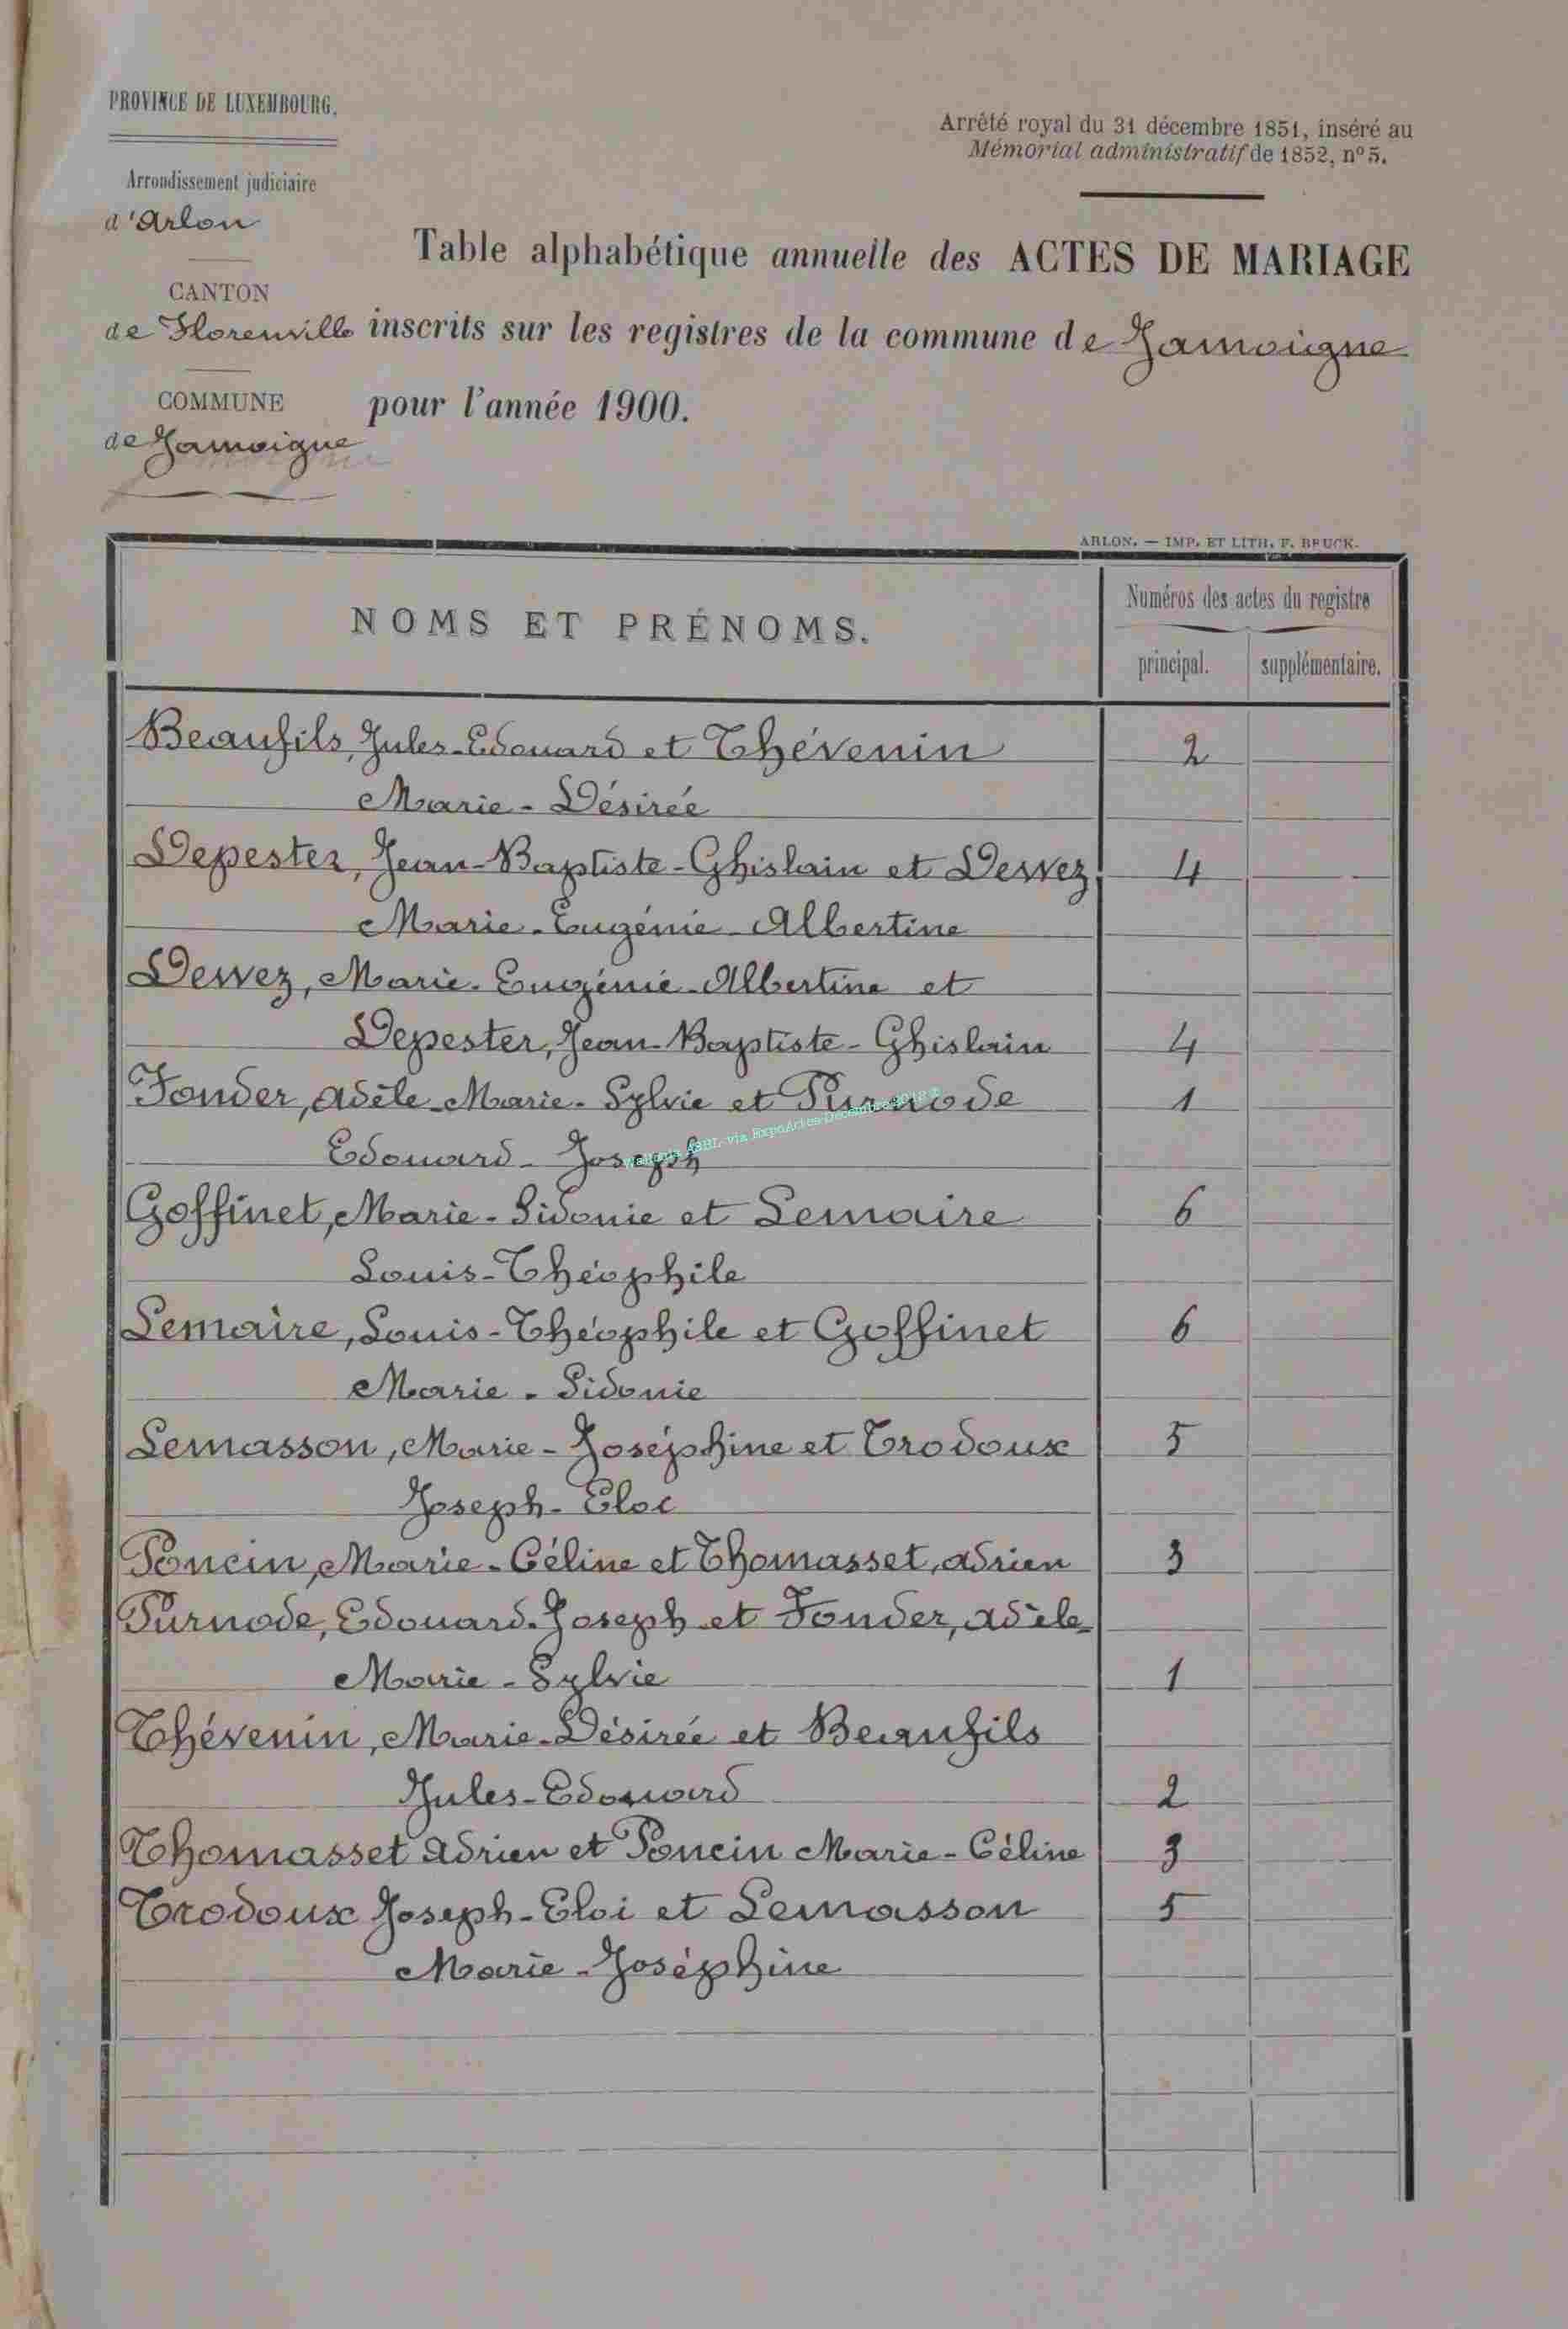 PROVINCE DE LUXEMBOURG.
Arrondissement judiciaire
d'Arlon
CANTON
de Florenville
COMMUNE
de Jamoigne
Arrêté royal du 31 décembre 1851, inséré au
Mémorial administratif de 1852, n° 5.
Table alphabétique annuelle des ACTES DE MARIAGE
inscrits sur les registres de la commune de Jamoigne
pour l'année 1900.
ARLON. — IMP. ET LITH. F. BRUCK.
NOMS ET PRÉNOMS.
Numéros des actes du registre
principal. supplémentaire.
Beaufils, Jules-Edouard et Thévenin 2
Marie-Désirée
Depester, Jean-Baptiste-Ghislain et Dewez 4
Marie-Eugénie-Albertine
Dewez, Marie-Eugénie-Albertine et
Depester, Jean-Baptiste-Ghislain 4
Fonder, Adèle-Marie-Sylvie et Purnode 1
Edouard-Joseph
Goffinet, Marie-Sidonie et Lemaire 6
Louis-Théophile
Lemaire, Louis-Théophile et Goffinet 6
Marie-Sidonie
Lemasson, Marie-Joséphine et Trodoux 5
Joseph-Eloi
Poncin, Marie-Céline et Thomasset, Adrien 3
Purnode, Edouard-Joseph et Fonder, Adèle-
Marie-Sylvie 1
Thévenin, Marie-Désirée et Beaufils
Jules-Edouard 2
Thomasset Adrien et Poncin Marie-Céline 3
Trodoux Joseph-Eloi et Lemasson 5
Marie-Joséphine